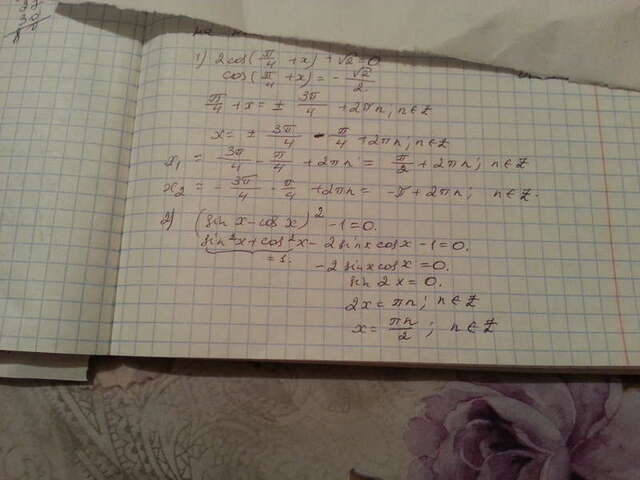 1) 2cos(π/4 + x) + √2 = 0
cos(π/4 + x) = - √2/2
π/4 + x = ± 3π/4 + 2πn, n∈Z
x = ± 3π/4 - π/4 + 2πn; n∈Z
x₁ = 3π/4 - π/4 + 2πn = π/2 + 2πn; n∈Z
x₂ = - 3π/4 - π/4 + 2πn = -π + 2πn; n∈Z.
2) (sin x - cos x)² - 1 = 0.
sin²x + cos²x - 2 sin x cos x - 1 = 0.
= 1.
- 2 sin x cos x = 0.
sin 2x = 0.
2x = πn; n∈Z
x = πn/2; n∈Z